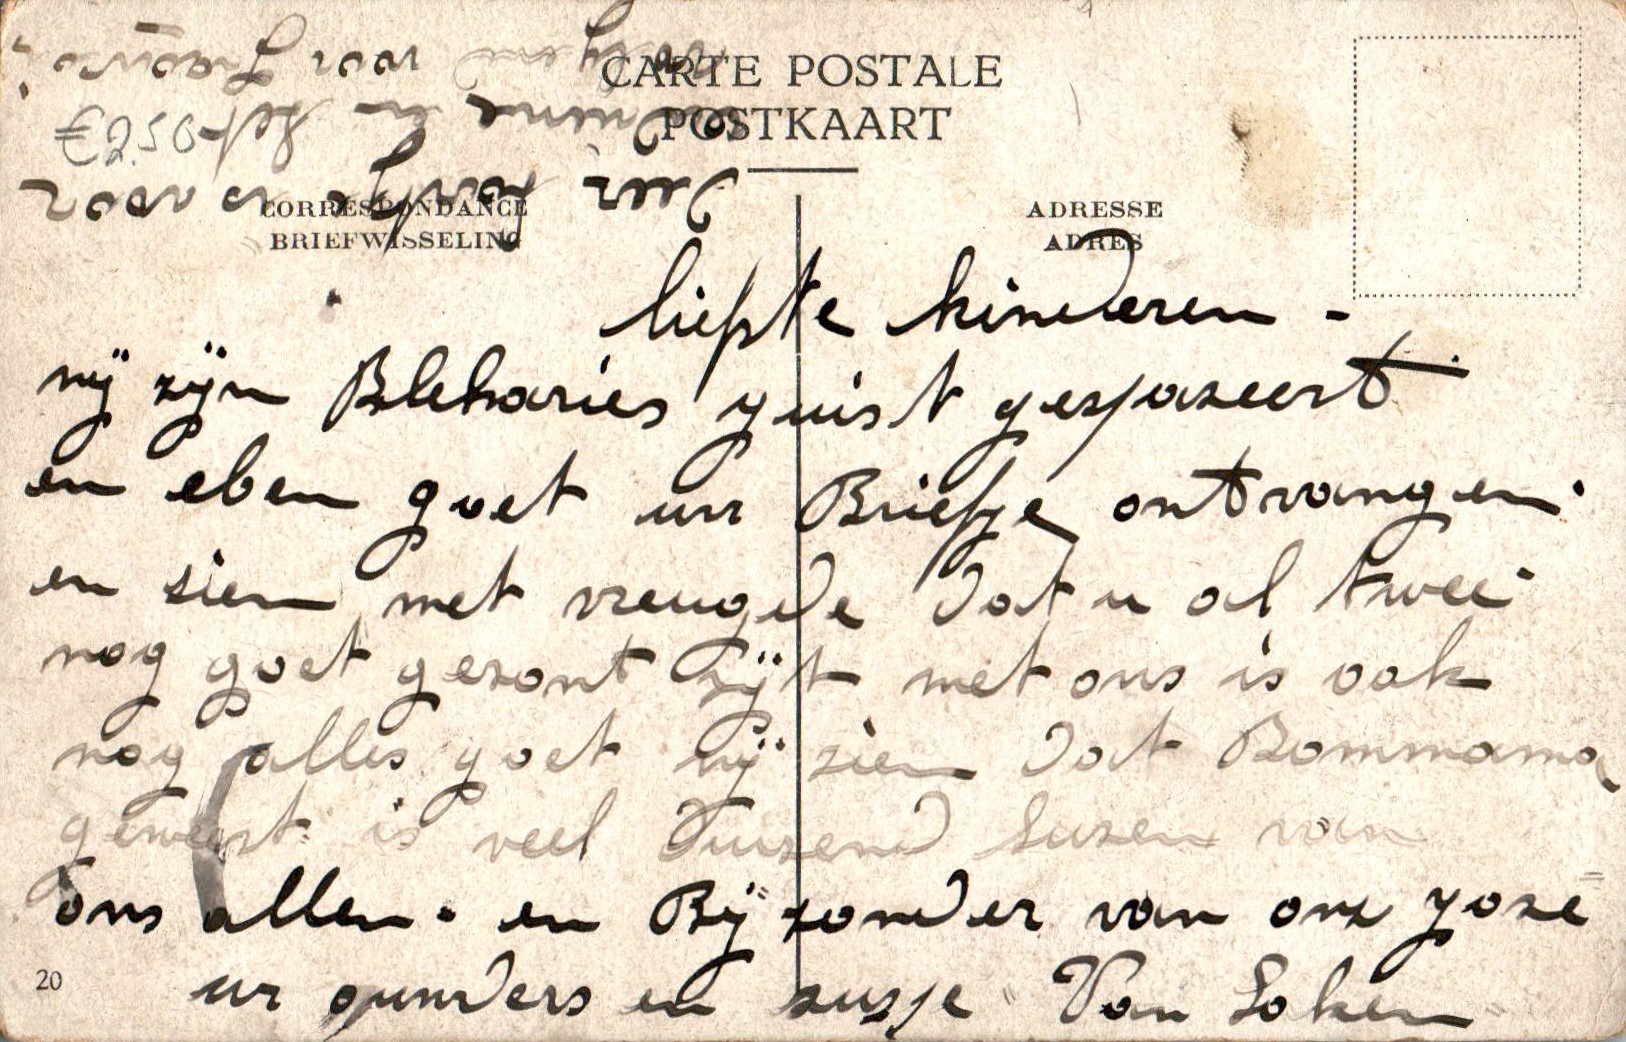 CARTE POSTALE
POSTKAART
CORRESPONDANCE
BRIEFWISSELING
ADRESSE
ADRES
liefste kinderen -
wij zijn Bleharies yuist gespaseert
en eben goet uw Briefje ontvangen
en zien met vreugde dat u al twee
nog goet gezont zijt met ons is ook
nog alles goet wij zien dat Bommama
geweest is veel duizend kuzen van
ons allen. en Bijzonder van onz yoze
uw ounders en zusje Van Loken
20
voor
en
€2,50
voor